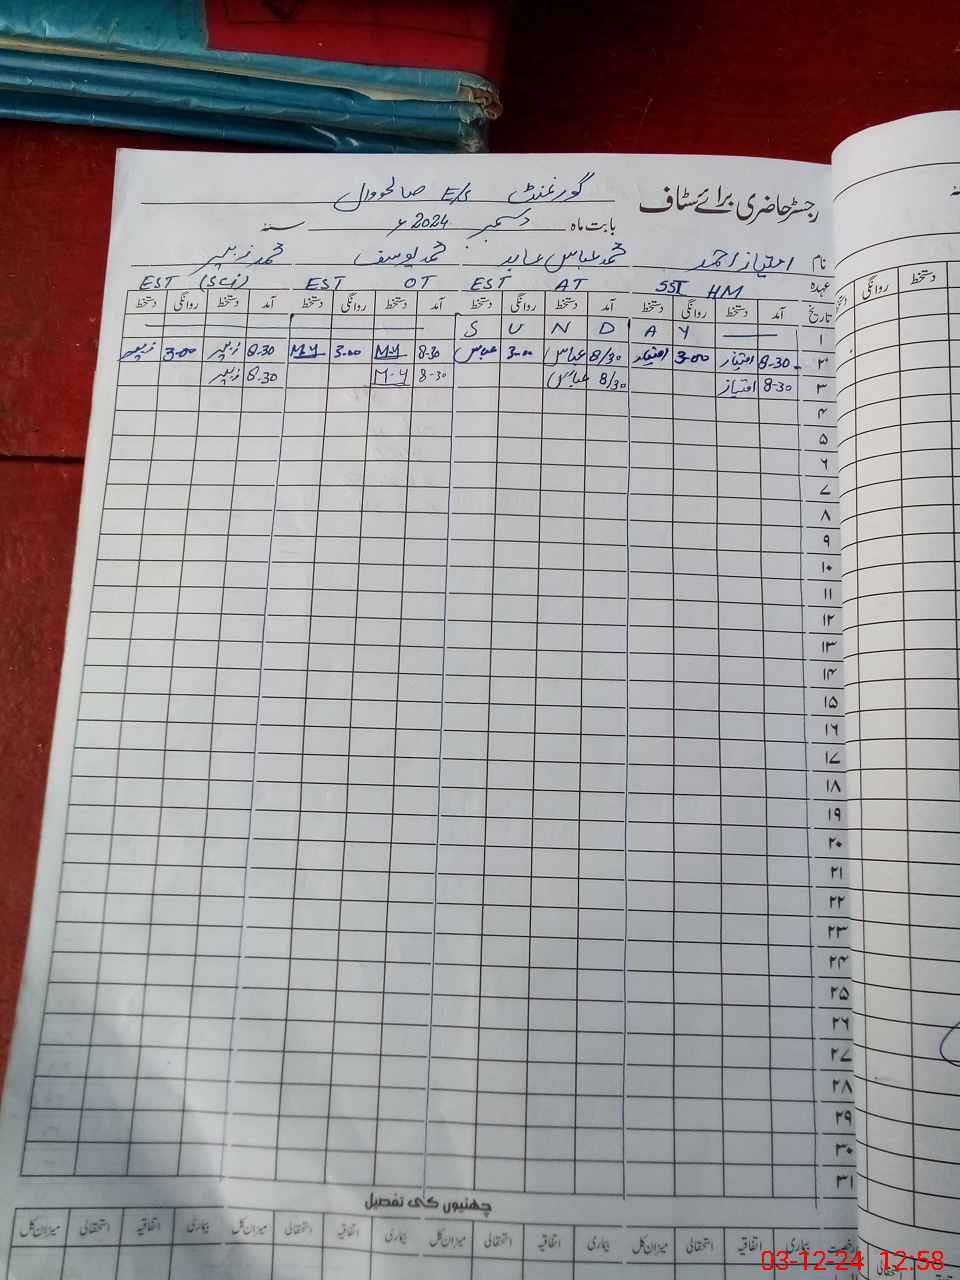 رجسٹر حاضری برائے سٹاف گورنمنٹ E/S صالحووال
بابت ماہ دسمبر 2024ء سنہ
نام امتیاز احمد محمد عباس عابد محمد یوسف محمد زبیر
عہدہ SST HM EST AT EST OT EST (Sci)
تاریخ آمد دستخط روانگی دستخط آمد دستخط روانگی دستخط آمد دستخط روانگی دستخط آمد دستخط روانگی دستخط
۱ S U N D A Y
۲ 8-30 امتیاز 3-00 امتیاز 8/30 عباس 3-00 عباس 8-30 M.Y 3-00 M.Y 8.30 زبیر 3-00 زبیر
۳ 8-30 امتیاز 8/30 عباس 8-30 M.Y 8.30 زبیر
۴
۵
۶
۷
۸
۹
۱۰
۱۱
۱۲
۱۳
۱۴
۱۵
۱۶
۱۷
۱۸
۱۹
۲۰
۲۱
۲۲
۲۳
۲۴
۲۵
۲۶
۲۷
۲۸
۲۹
۳۰
۳۱
چھٹیوں کی تفصیل
رخصت بیماری اتفاقیہ استحقاقی میزان کل بیماری اتفاقیہ استحقاقی میزان کل بیماری اتفاقیہ استحقاقی میزان کل بیماری اتفاقیہ استحقاقی میزان کل
دستخط روانگی دستخط
استحقاقی
03-12-24 12:58